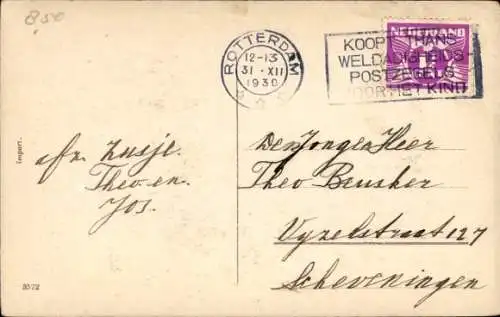 850
ROTTERDAM
12-13
31·XII
1930
KOOPT THANS
WELDADIGHEIDS
POSTZEGELS
VOOR HET KIND
NEDERLAND
Import.
afz. Zusje.
Theo en.
Jos.
Den Jongen Heer
Theo Beusker
Vyzelstraat 127
Scheveningen
3572